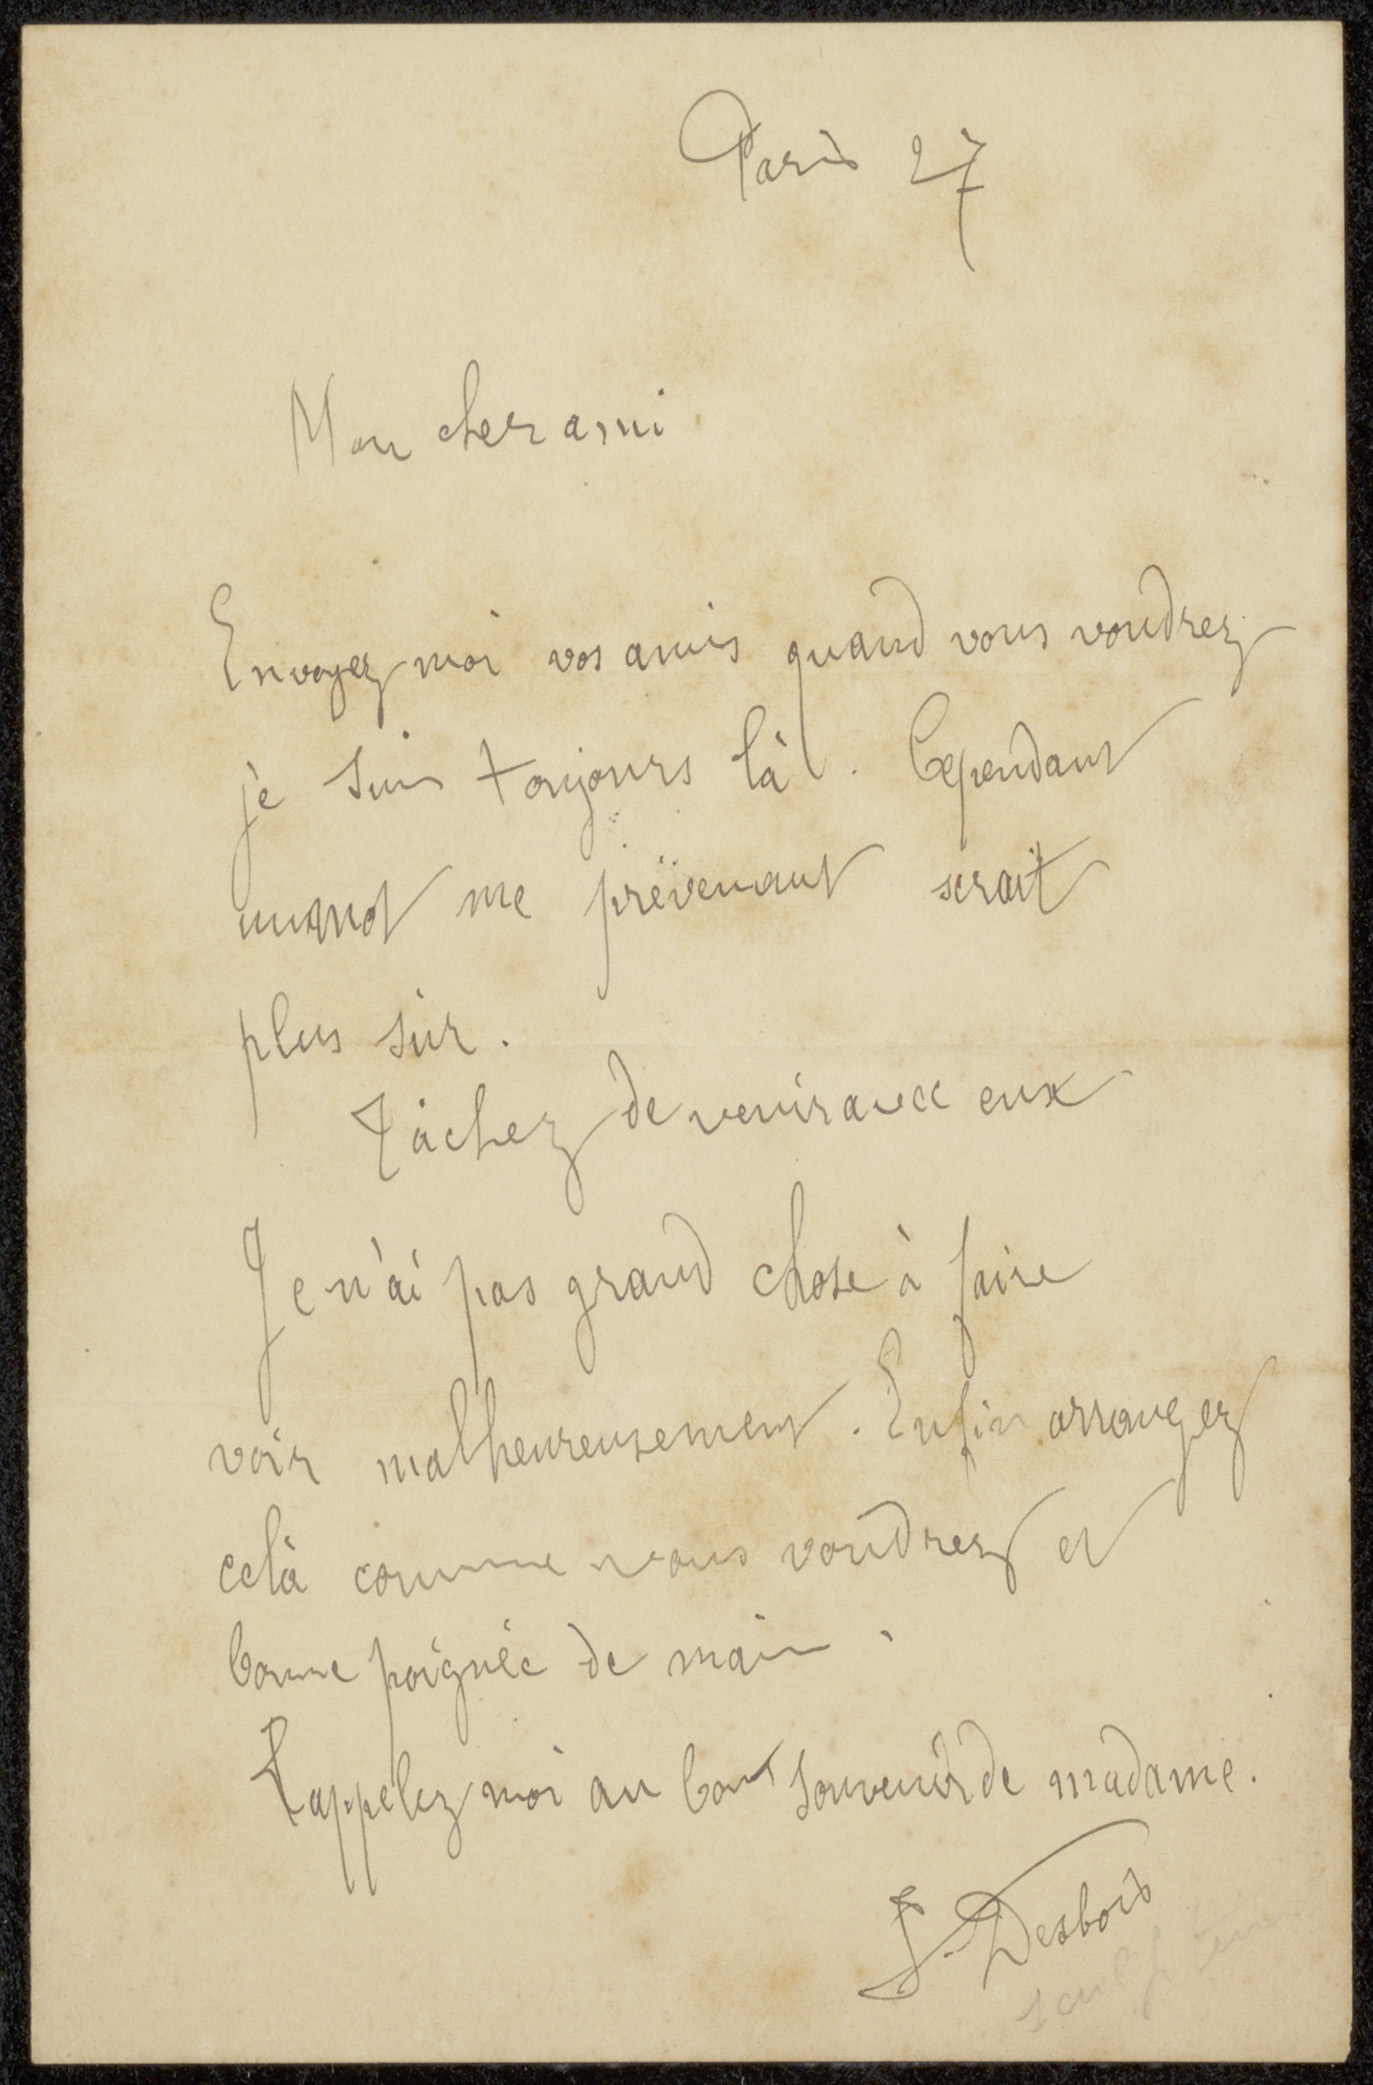 Paris 27
Mon cher ami
Envoyez moi vos amis quand vous voudrez
je suis toujours là. Cependant
un mot me prévenant serait
plus sûr.
Tâchez de venir avec eux
Je n'ai pas grand chose à faire
voir malheureusement. Enfin arrangez
celà comme vous voudrez et
bonne poignée de main.
Rappelez moi au bon souvenir de madame.
J. Desbois
sculpteur